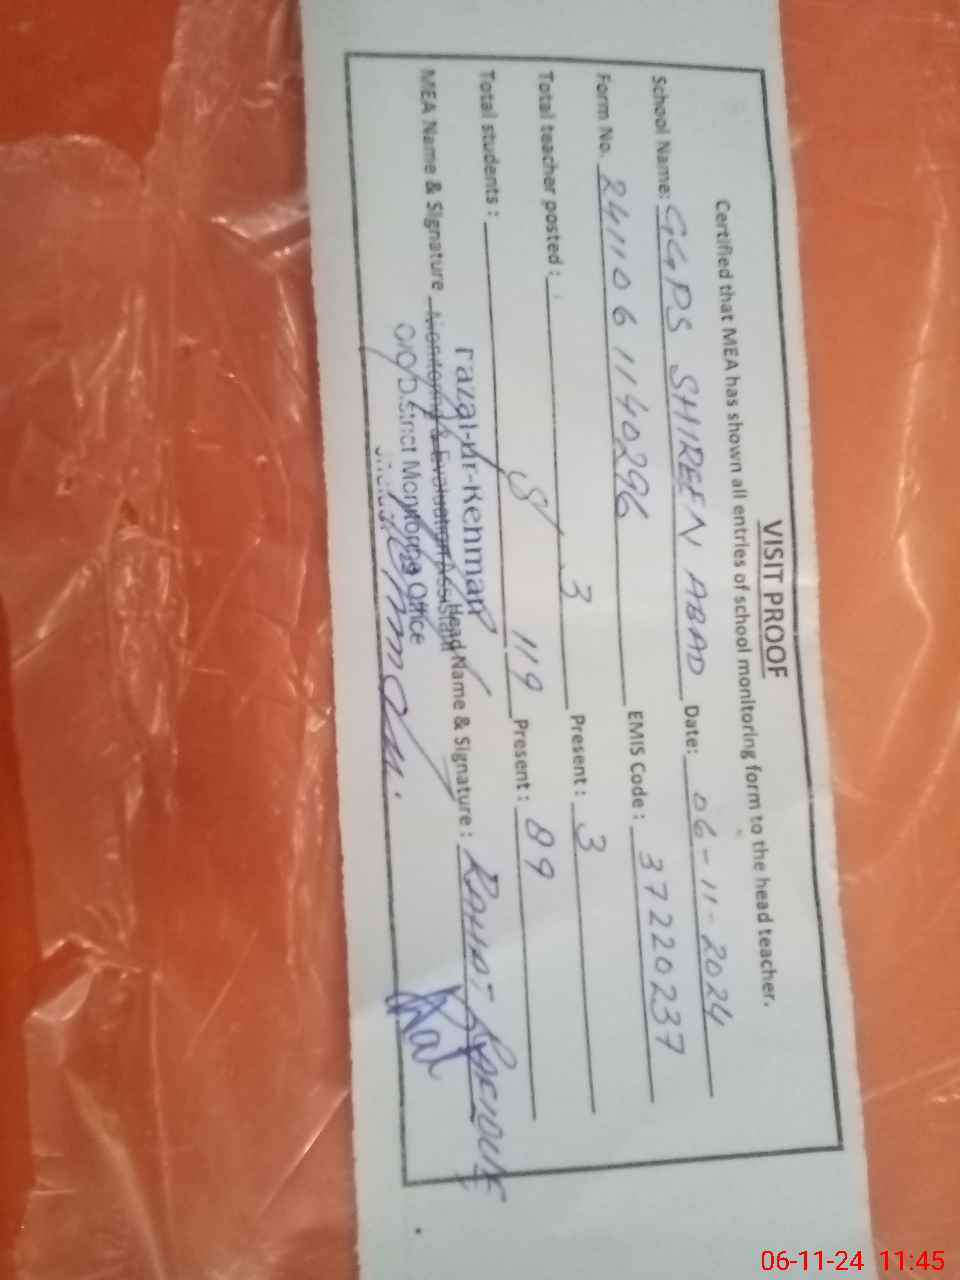 VISIT PROOF
Certified that MEA has shown all entries of school monitoring form to the head teacher.
School Name: GGPS SHIREEN ABAD Date: 06-11-2024
Form No. 2411061140296 EMIS Code: 37220237
Total teacher posted: 3 Present: 3
Total students: 119 Present: 89
MEA Name & Signature Fazal-ur-Rehman Head Name & Signature:
Monitoring & Evaluation Assistant
O/O District Monitoring Office
06-11-24 11:45